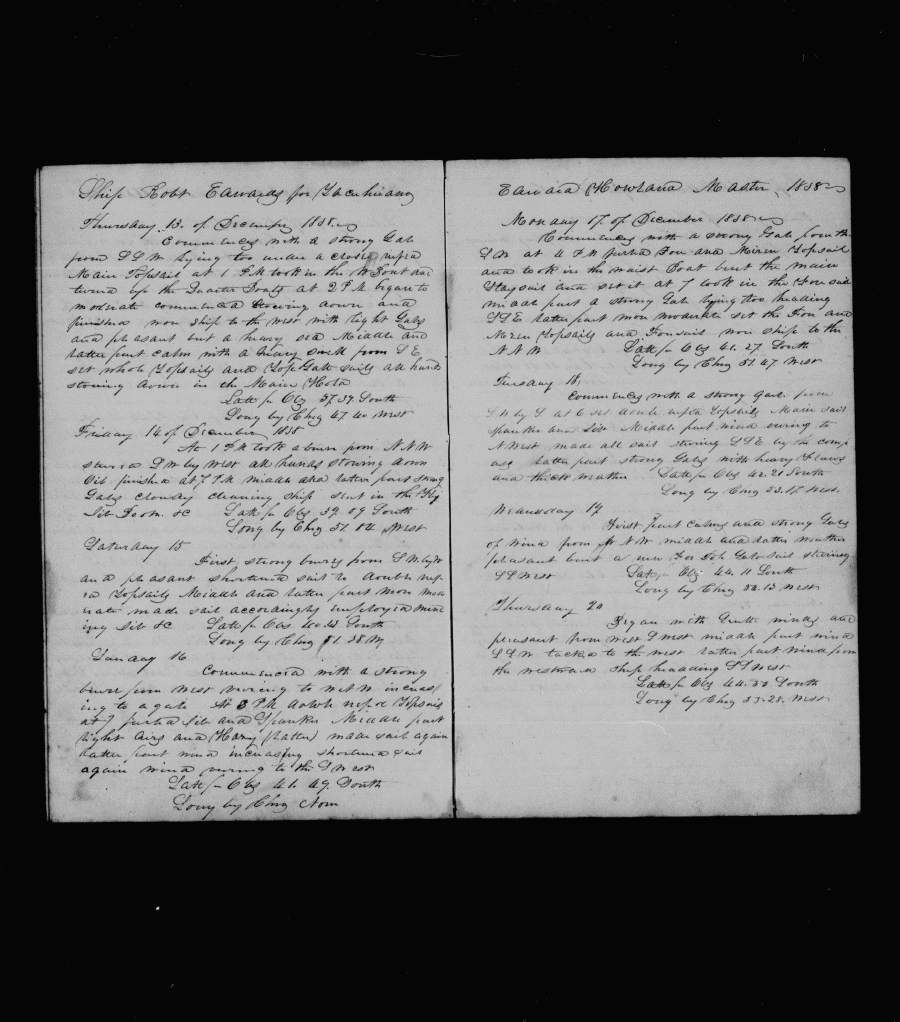 Ship Robt Edwards for
Thursday 13. of December 1838.
Commences with a strong Gale
from SSW lying too under a close reefd
Main Topsail at 1 P.M. took in the W Boat and
turnd up the Quarter Boats at 2 P.M. began to
moderate commenced stowing down and
finished wore ship to the west with light Gales
and pleasant but a heavy sea Middle and
latter part calm with a heavy swell from SE
set whole Topsails and TopGall sails all hands
stowing down in the Main Hold
Latt by Obs 37.37 South
Long by Chry 47 40 West
Friday 14 of December 1838
At 1 P.M. took a breeze from NNW
steered SW by West all hands stowing down
Oil finished at 7 P.M. middle and latter part strong
Gales cloudy cleaning ship sent in the Flyg
Jib Boom &c Latt by Obs 39 09 South
Long by Chry 51. 04 West
Saturday 15
First strong breezes from SW by W
and pleasant shortened sail to double reef
ed Topsails Middle and latter part more mod
erate made sail accordingly employed mend
ing Jib &c Latt by Obs 40.43 South
Long by Chry 51. 38 W
Sunday 16
Commenced with a strong
breeze from West veering to WNW increas
ing to a gale At 3 P.M. double reefd Topsails
at 7 furled Jib and Spanker Middle part
light airs and Hazy (latter) made sail again
latter part wind increasing shortened sail
again wind veering to the SWest
Latt by Obs 41. 49. South
Long by Chry None
Edward Howland Master 1838
Monday 17 of December 1838
Commences with a strong Gale from the
SW at 4 P.M. furled Fore and Mizen Topsail
and took in the waist Boat bent the main
Staysail and set it at 7 took in the Fore sail
middle part a strong Gale lying too heading
SSE latter part more moderate set the Fore and
Mizen Topsails and Foresail wore ship to the
NNW Latt by Obs 41. 27. South
Long by Chry 51. 47. West
Tuesday 18.
Commences with a strong gale from
SW by S at 6 set double reefd Topsails Main sail
spanker and Jib Middle part wind veering to
NWest made all sail steering SSE by the comp
ass latter part strong Gales with heavy Flaws
and thick weather Latt by Obs 42.21 South
Long by Chry 53.17 West.
Wednesday 19
First part calms and strong Gales
of wind from NW middle and latter weather
pleasant bent a new For Top Galt sail steering
SSWest Latt by Obs 44 11 South
Long by Chry 54.13 West
Thursday 20
Began with Gentle winds and
pleasant from West SWest middle part wind
SSW tacked to the west latter part wind from
the westward ship heading SSWest
Latt by Obs 44.50 South
Long by Chry 53.28. West.